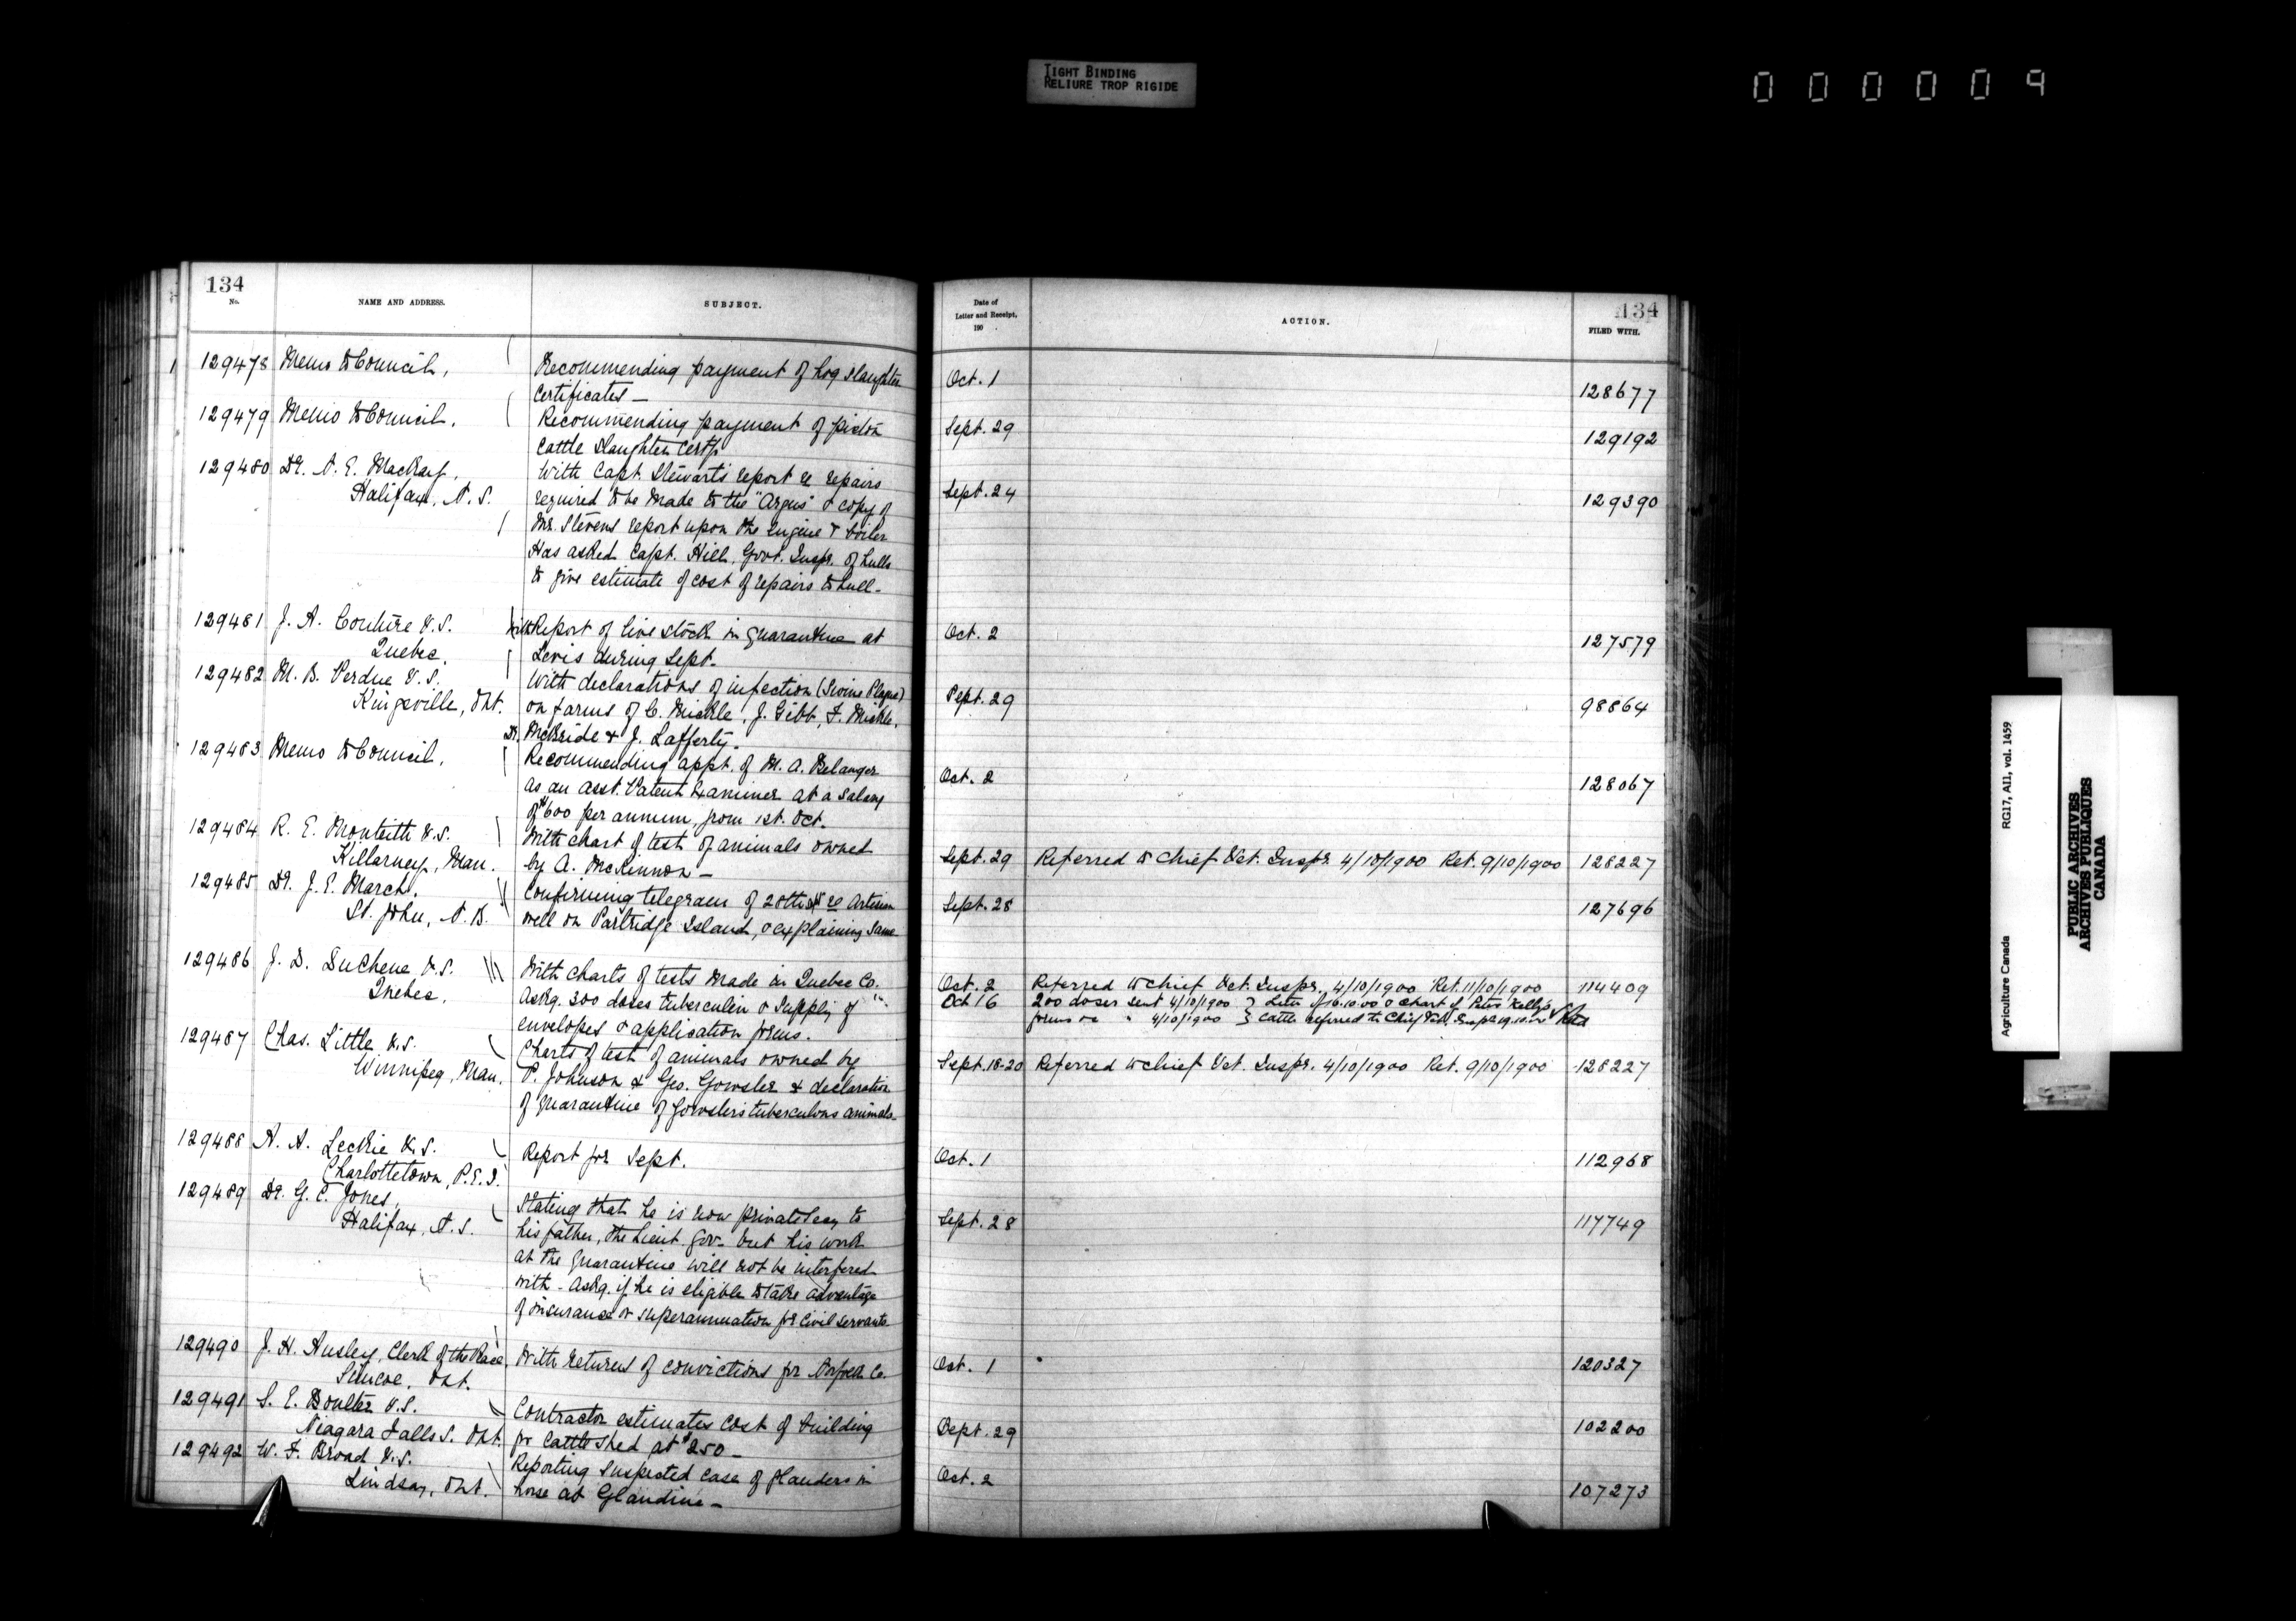 TIGHT BINDING
RELIURE TROP RIGIDE
000009
134
No.
NAME AND ADDRESS.
SUBJECT.
129478 Memo to Council,
Recommending payment of hog slaughter
Certificates —
129479 Memo to Council,
Recommending payment of
Cattle Slaughter Certfs
129480 Dr. N. E. MacKay,
Halifax, N. S.
With Capt. Stewart's report re repairs
required to be made to the "Argus" & copy of
Mr. Stevens report upon the Engine & boiler
Has asked Capt. Hill, Govt. Inspr. of hulls
to give estimate of cost of repairs to hull -
129481 J. A. Couture V.S.
Quebec.
With Report of live stock in quarantine at
Levis during Sept.
129482 M. B. Perdue V.S.
Kingsville, Ont.
With declarations of infection (Swine Plague)
on farms of C. Mickle, J. Gibb, F. Mickle,
Dr. McBride & J. Lafferty.
129483 Memo to Council,
Recommending appt. of M. A. Belanger
as an asst. Patent Examiner at a salary
of $600 per annum, from 1st. Oct.
129484 R. E. Monteith V.S.
Killarney, Man.
With chart of test of animals owned
by A. McKinnon —
129485 Dr. J. E. March,
St. John, N. B.
Confirming telegram of 28th re Artesian
well on Partridge Island, & explaining same
129486 J. D. Duchene V.S.
Quebec,
With charts of tests made in Quebec Co.
Askg. 300 doses tuberculin & supply of
envelopes & application forms.
129487 Chas. Little V.S.
Winnipeg, Man.
Charts of test of animals owned by
P. Johnson & Geo. Gowsler & declaration
of quarantine of Gowsler's tuberculous animals.
129488 A. A. Leckie V.S.
Charlottetown, P.E.I.
Report for Sept.
129489 Dr. G. C. Jones,
Halifax, N.S.
Stating that he is now private Secy to
his father, the Lieut. Gov. but his work
at the quarantine will not be interfered
with - Askg. if he is eligible to take advantage
of insurance or superannuation for Civil Servants
129490 J. H. Ansley, Clerk of the Peace,
Simcoe, Ont.
With returns of convictions for Norfolk Co.
129491 S. E. Boulter V.S.
Niagara Falls S. Ont.
Contractor estimates cost of building
for Cattle Shed at $250 —
129492 W. F. Broad V.S.
Lindsay, Ont.
Reporting suspected case of glanders in
horse at Glandine —
Date of
Letter and Receipt,
190 .
ACTION.
134
FILED WITH.
Oct. 1 128677
Sept. 29 129192
Sept. 24 129390
Oct. 2 127579
Sept. 29 98864
Oct. 2 128067
Sept. 29 Referred to Chief Vet. Inspr. 4/10/1900 Ret. 9/10/1900 128227
Sept. 28 127696
Oct. 2 Referred to Chief Vet. Inspr. 4/10/1900 Ret. 11/10/1900 114409
Oct 16 200 doses sent 4/10/1900 } Letter of 16.10.00 & Chart of Peter Kelly's
forms do " 4/10/1900 } Cattle referred to Chief Vet. Inspr 19.10.00
Sept. 18-20 Referred to Chief Vet. Inspr. 4/10/1900 Ret. 9/10/1900 128227
Oct. 1 112968
Sept. 28 117749
Oct. 1 120327
Sept. 29 102200
Oct. 2 107273
Agriculture Canada RG17, AI1, vol. 1459
PUBLIC ARCHIVES
ARCHIVES PUBLIQUES
CANADA